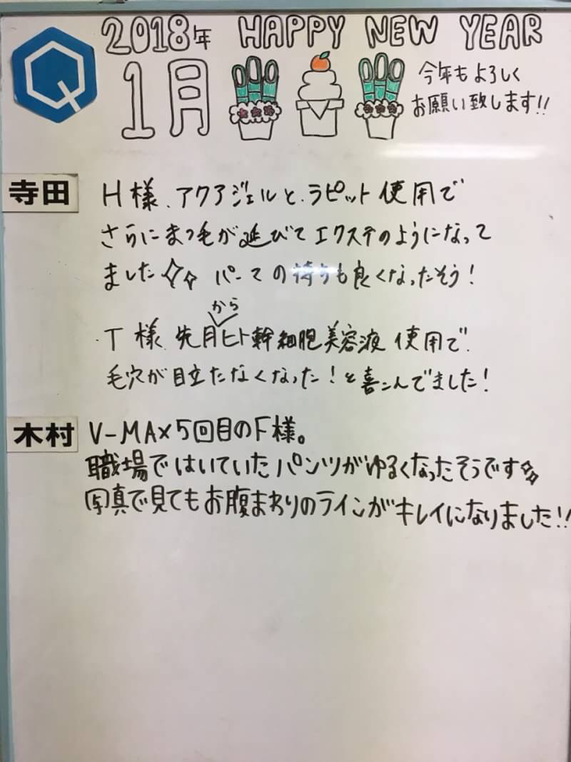 2018年 HAPPY NEW YEAR
1月
今年もよろしく
お願い致します!!
寺田
H様、アクアジェルと、ラピット使用で
さらにまつ毛が延びてエクステのようになって
ました パーマの持ちも良くなったそう!
から
T様 先月ヒト幹細胞美容液 使用で
毛穴が目立たなくなった!と喜こんでました!
木村
V-MAX5回目のF様。
職場ではいていたパンツがゆるくなったそうです
写真で見てもお腹まわりのラインがキレイになりました!!